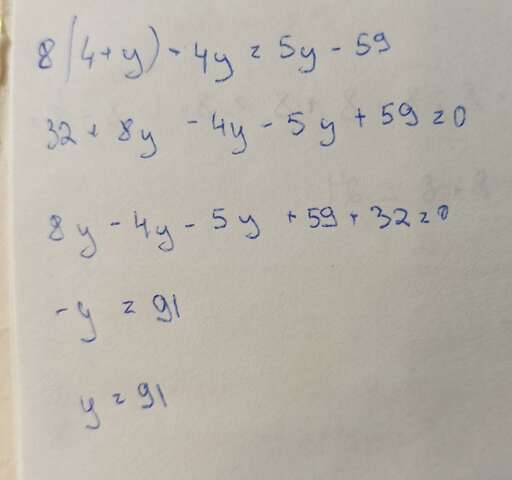 8(4+y) - 4y = 5y - 59
32 + 8y - 4y - 5y + 59 = 0
8y - 4y - 5y + 59 + 32 = 0
-y = 91
y = 91